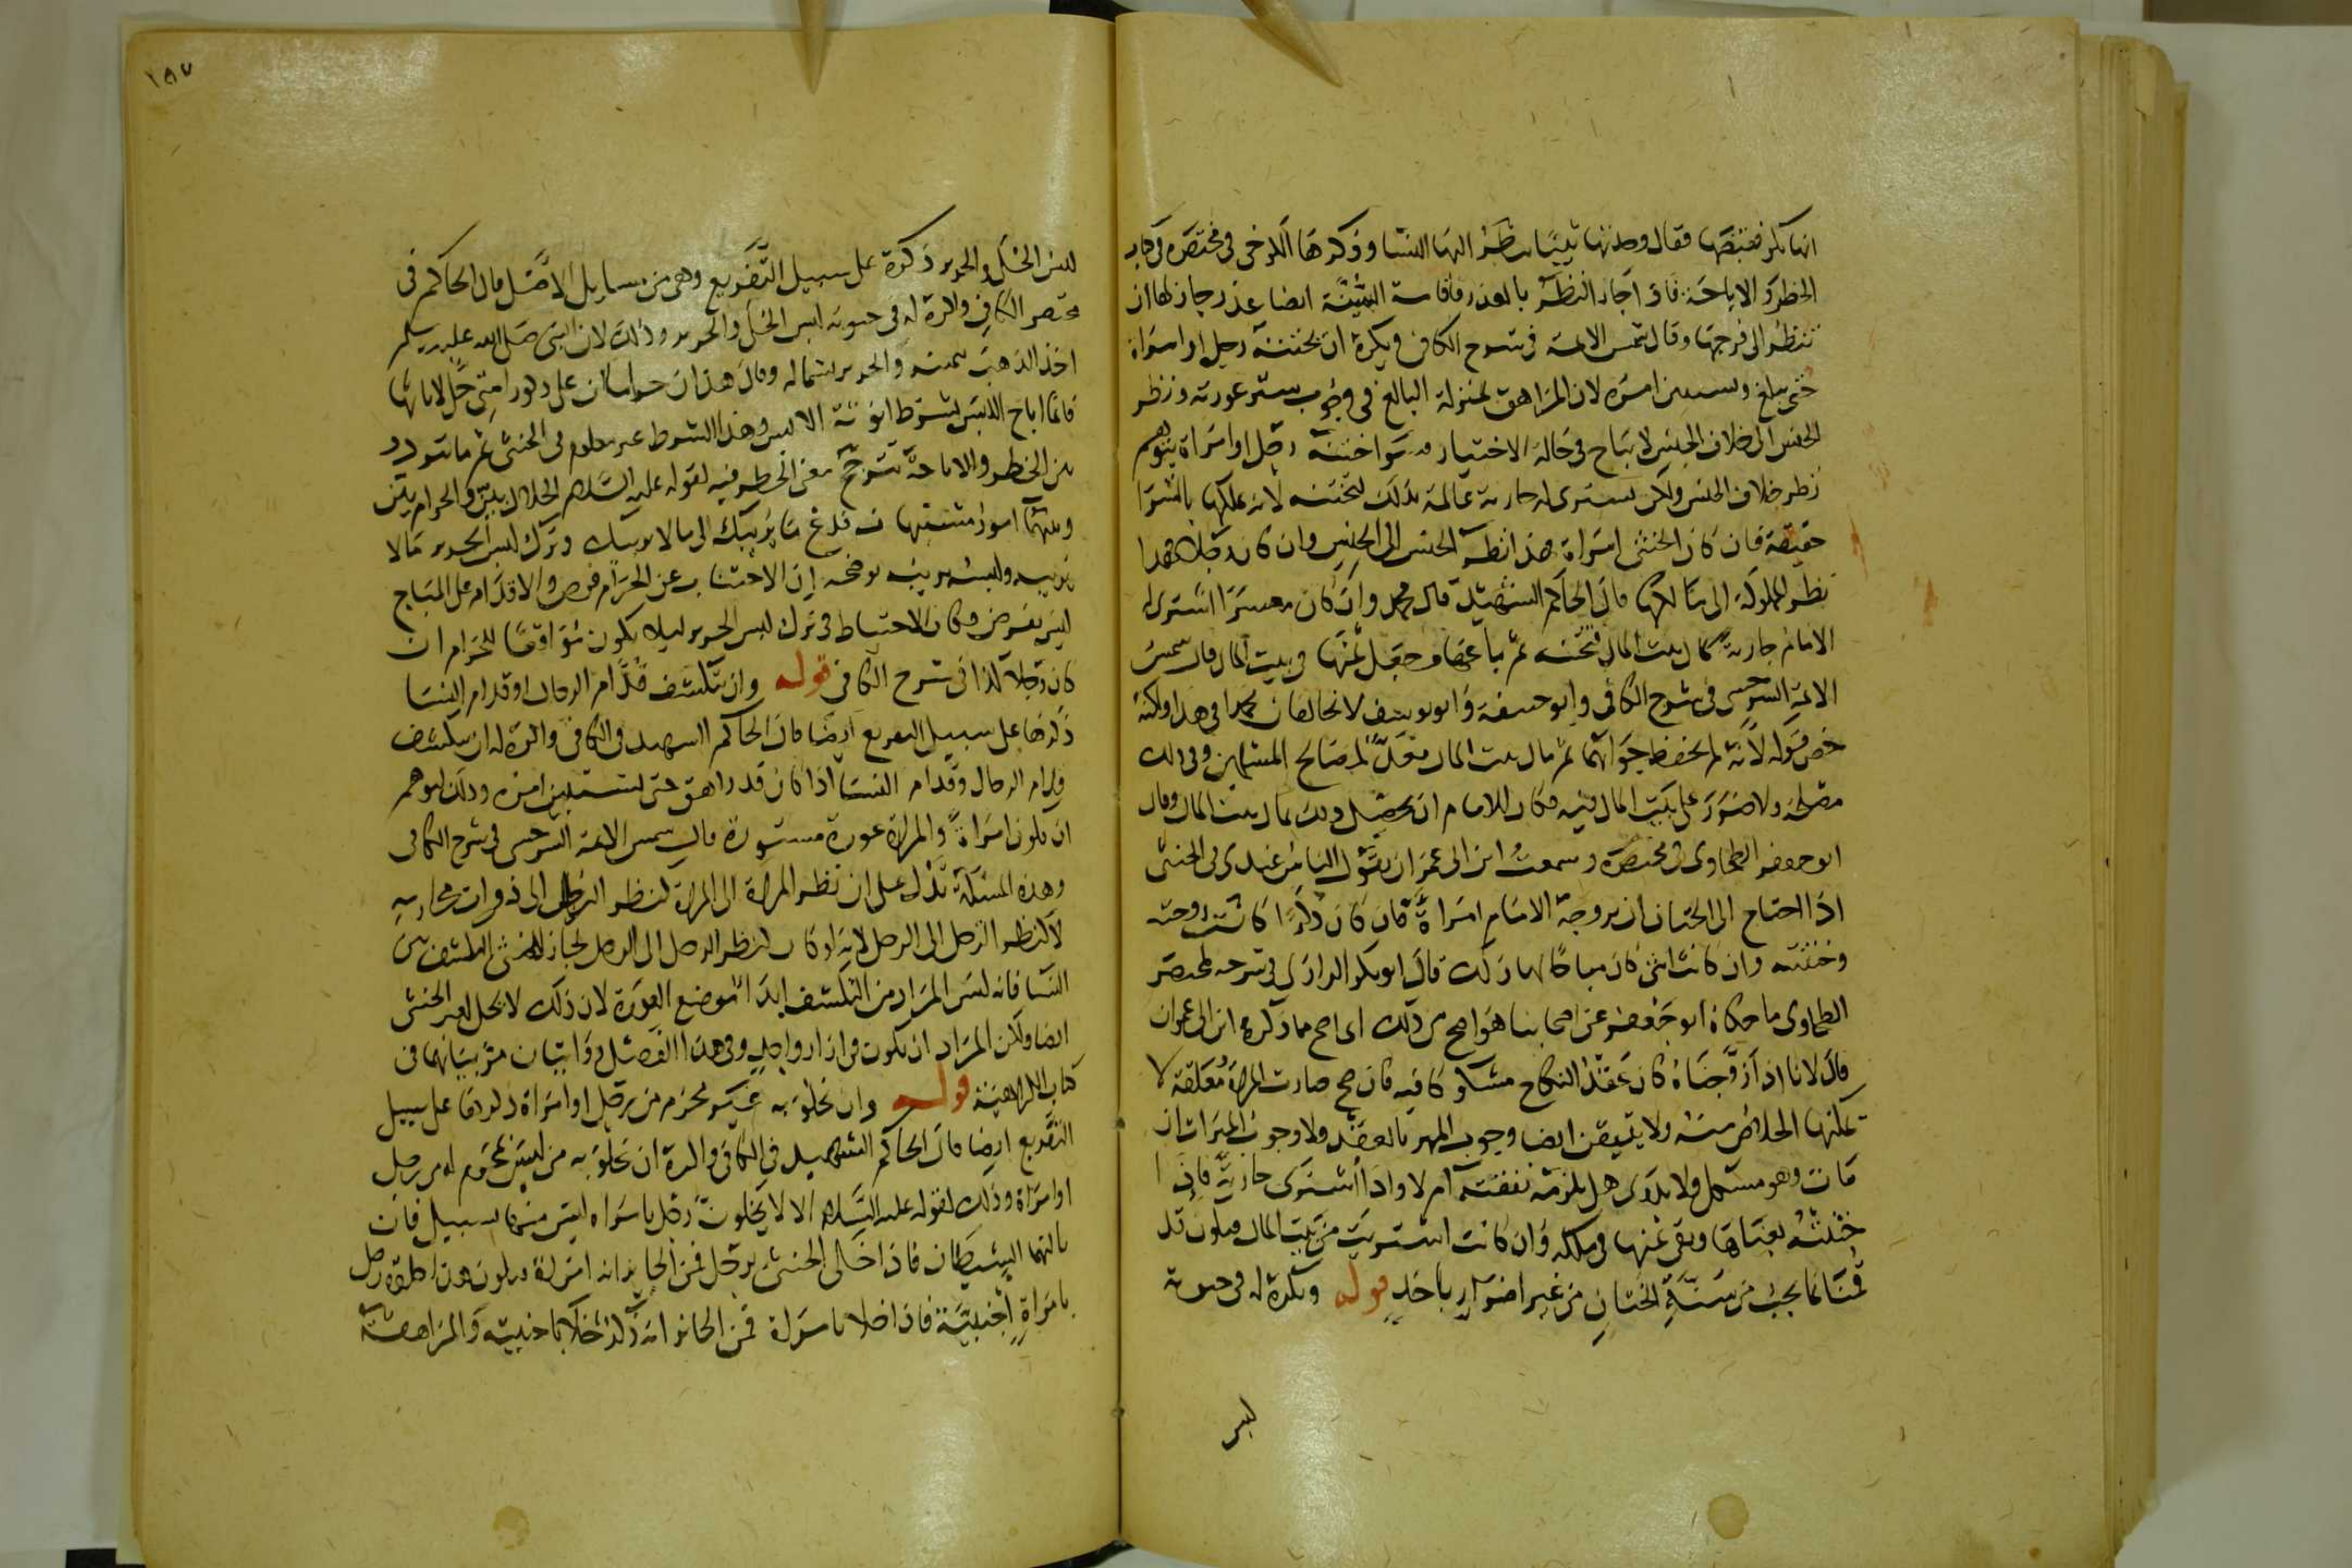 انها بكر فقبضها فقال وجدتها ثيبا ينظر اليها النسا وذكرها الكرخي في مختصره في كتاب
الحظر والاباحة فاذا جاز النظر بالعذر فاقامة السنة ايضا عذر جاز لها ان
تنظر الى فرجها وقال شمس الايمة في شرح الكافي ويكره ان يختنه رجل او امراة
حتى يبلغ ويستبين امره لان المراهق بمنزلة البالغ في وجوب ستر عورته ونظر
الجنس الى خلاف الجنس لا يباح في حالة الاختيار وسوا ختنه رجل او امراة يتوهم
نظر خلاف الجنس ولكن يشترى له جارية عالمة بذلك لتختنه لانه يملكها بالشرا
حقيقة فان كان الخنثى امراة فهذا نظر الجنس الى الجنس وان كان رجلا فهذا
نظر المملوكة الى مالكها قال الحاكم الشهيد قال محمد وان كان معسرا اشترى له
الامام جارية بمال بيت المال فختنته ثم باعها وجعل ثمنها في بيت المال قال شمس
الايمة السرخسي في شرح الكافي وابو حنيفة وابو يوسف لا يخالفان محمدا في هذا ولكنه
خص قوله لانه لم يحفظ جوابهما ثم مال بيت المال معد لمصالح المسلمين وفي ذلك
مصلحة ولا ضرر على بيت المال فيه فكان للامام ان يحصل ذلك بمال بيت المال وقال
ابو جعفر الطحاوي في مختصره وسمعت ابن ابي عمران يقول القياس عندي في الخنثى
اذا احتاج الى الختان ان يزوجه الامام امراة فان كان ذكرا كانت زوجته
وختنته وان كانت انثى كان مباحا لها ذلك قال ابو بكر الرازي في شرحه لمختصر
الطحاوي ما حكاه ابو جعفر عن اصحابنا هو اصح من ذلك اي اصح مما ذكره ابن ابي عمران
قال لانا اذا زوجناه كان عقد النكاح مشكوكا فيه فان صح صارت المراة معلقة لا
يمكنها الخلاص منه ولا يتيقن ايضا وجوب المهر بالعقد ولا وجوب الميراث ان
مات وهو مشكل ولا يدرى هل يلزمه نفقته ام لا واذا اشترى جارية فاذا
ختنته بعناها وبقى ثمنها في ملكه وان كانت اشتريت من بيت المال فيكون قد
قمنا بما يجب من سنة الختان من غير اضرار باحد قوله ويكره له في حيوته
لبس
لبس الحلى والحرير ذكره على سبيل التفريع وهى من مسايل الاصل قال الحاكم في
مختصر الكافي واكره له في حيوته لبس الحلى والحرير وذلك لان النبي صلى الله عليه وسلم
اخذ الذهب بيمينه والحرير بشماله وقال هذان حرامان على ذكور امتي حل لاناثها
فانما اباح اللبس بشرط انوثة اللابس وهذا الشرط غير معلوم في الخنثى ثم ما تردد
بين الحظر والاباحة يترجح معنى الحظر فيه لقوله عليه السلام الحلال بين والحرام بين
وبينهما امور مشتبهات فدع ما يريبك الى ما لا يريبك وترك لبس الحرير مما لا
يريبه ولبسه يريبه يوضحه ان الاجتناب عن الحرام فرض والاقدام على المباح
ليس بفرض وكان الاحتياط في ترك لبس الحرير ليلا يكون مواقعا للحرام ان
كان رجلا كذا في شرح الكافي قوله وان يتكشف قدام الرجال او قدام النسا
ذكرها على سبيل التفريع ايضا قال الحاكم الشهيد في الكافي واكره له ان يتكشف
قدام الرجال وقدام النسا اذا كان قد راهق حتى يستبين امره وذلك لتوهم
ان يكون امراة والمراة عورة مستورة قال شمس الايمة السرخسي في شرح الكافي
وهذه المسئلة تدل على ان نظر المراة الى المراة كنظر الرجل الى ذوات محارمه
لا كنظر الرجل الى الرجل لانه لو كان كنظر الرجل الى الرجل لجاز للخنثى التكشف بين
النسا فانه ليس المراد من التكشف ابدا موضع العورة لان ذلك لا يحل لغير الخنثى
ايضا ولكن المراد ان يكون في ازار واحد وفي هذا الفصل روايتان مر بيانهما في
كتاب الكراهية قوله وان يخلو به غير محرم من رجل او امراة ذكرها على سبيل
التفريع ايضا قال الحاكم الشهيد في الكافي واكره ان يخلو به من ليس بمحرم له من رجل
او امراة وذلك لقوله عليه السلام الا لا يخلون رجل بامراة ليس منها بسبيل فان
ثالثهما الشيطان فاذا خلى الخنثى برجل فمن الجايز انه امراة فيكون هذا خلوة رجل
بامراة اجنبية فاذا خلا بامراة فمن الجايز انه ذكر خلا باجنبية والمراهقة
١٨٧